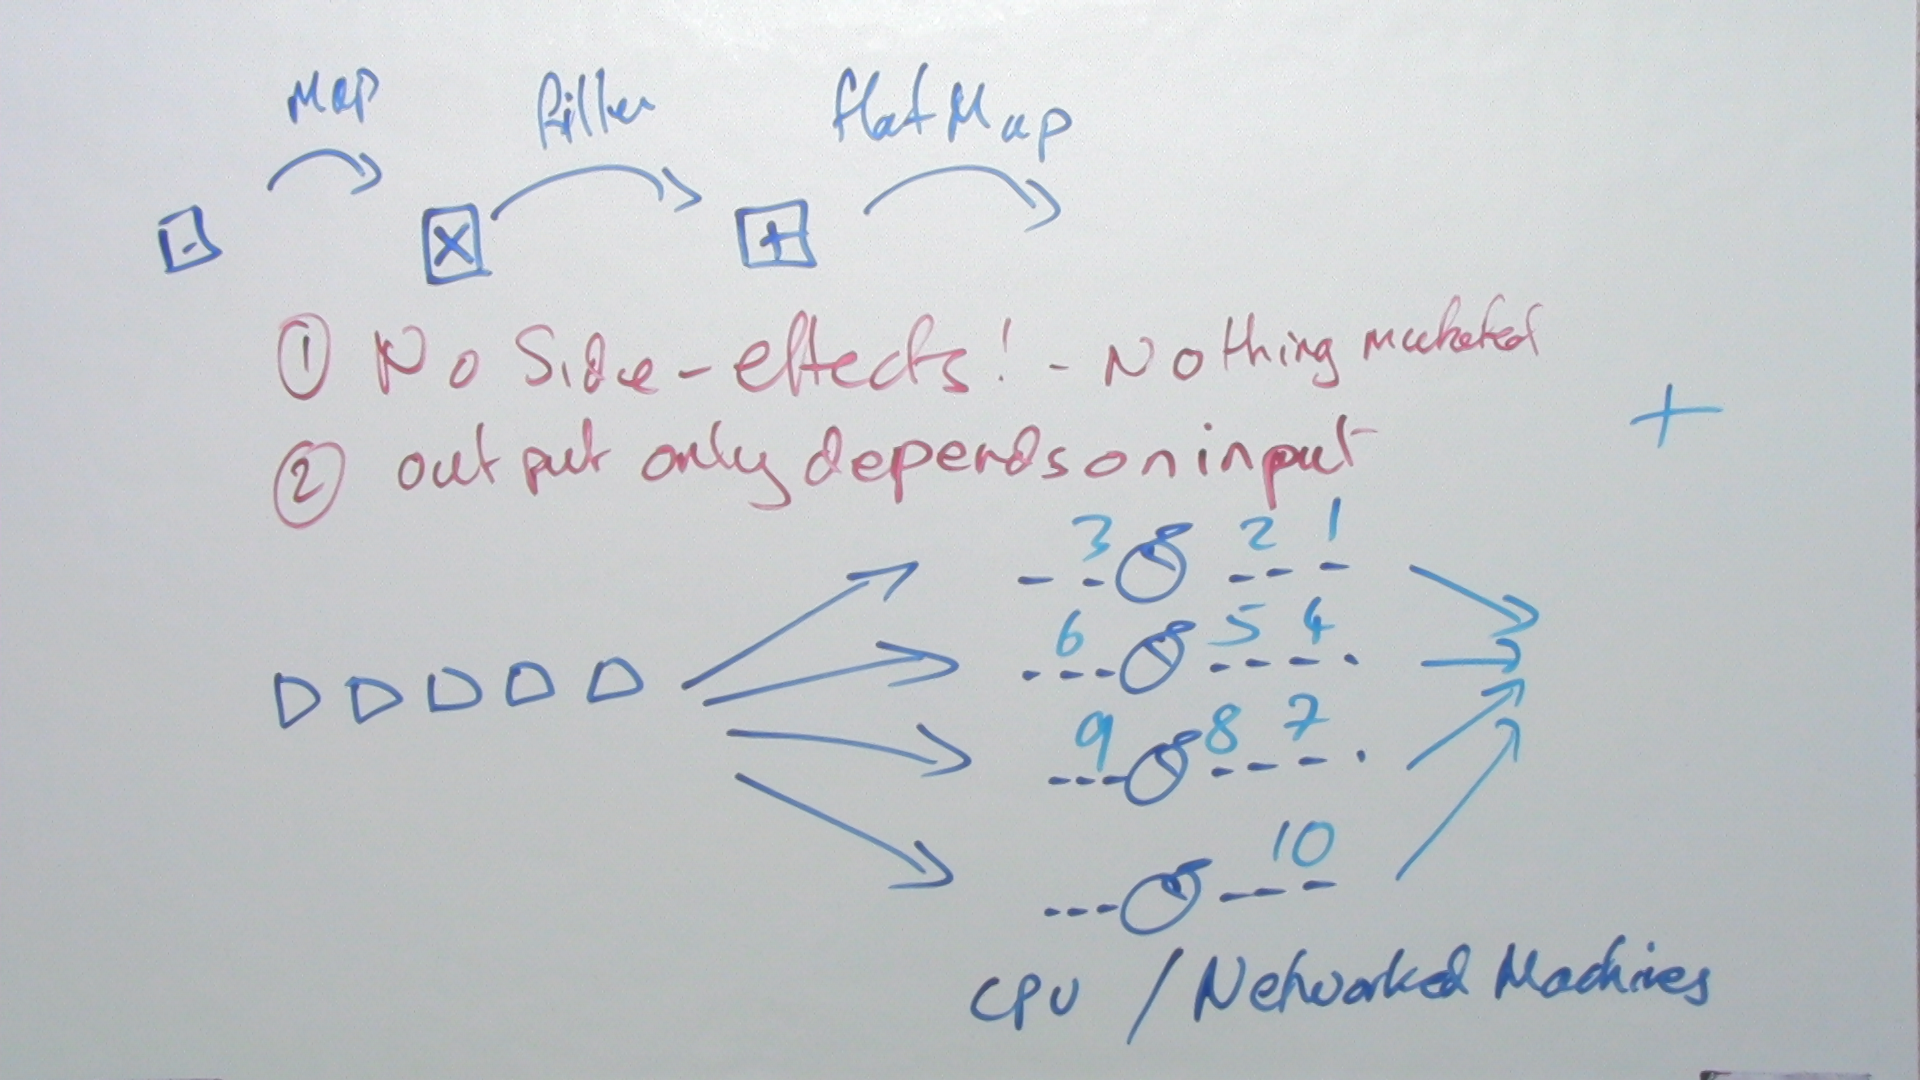 Map filter flatMap
- X +
① No Side-effects! - Nothing mutated
② output only depends on input
+
3 2 1
6 5 4
9 8 7
10
CPU / Networked Machines